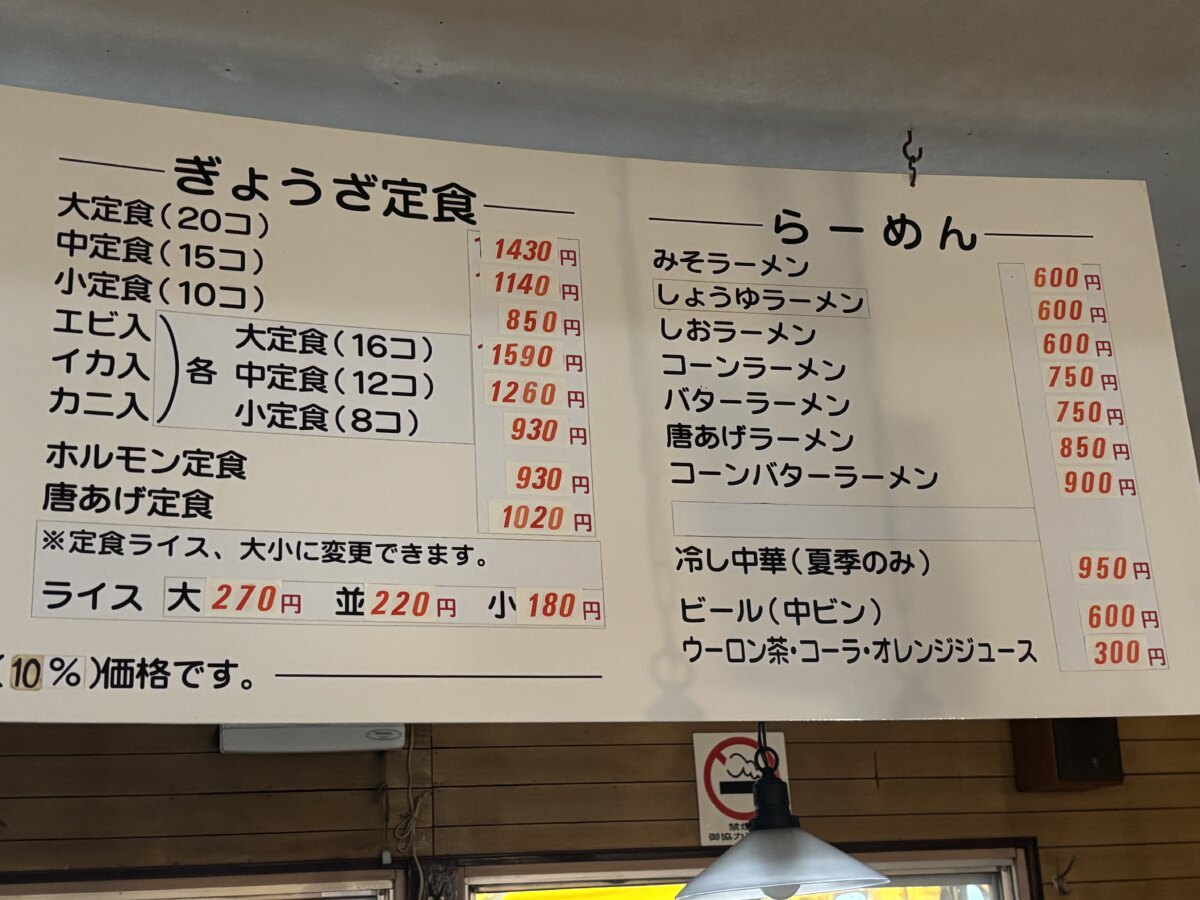 ぎょうざ定食
大定食(20コ) 1430円
中定食(15コ) 1140円
小定食(10コ) 850円
エビ入
イカ入
カニ入
各
大定食(16コ) 1590円
中定食(12コ) 1260円
小定食(8コ) 930円
ホルモン定食 930円
唐あげ定食 1020円
※定食ライス、大小に変更できます。
ライス 大 270円 並 220円 小 180円
(10%)価格です。
らーめん
みそラーメン 600円
しょうゆラーメン 600円
しおラーメン 600円
コーンラーメン 750円
バターラーメン 750円
唐あげラーメン 850円
コーンバターラーメン 900円
冷し中華(夏季のみ) 950円
ビール(中ビン) 600円
ウーロン茶・コーラ・オレンジジュース 300円
禁煙
御協力